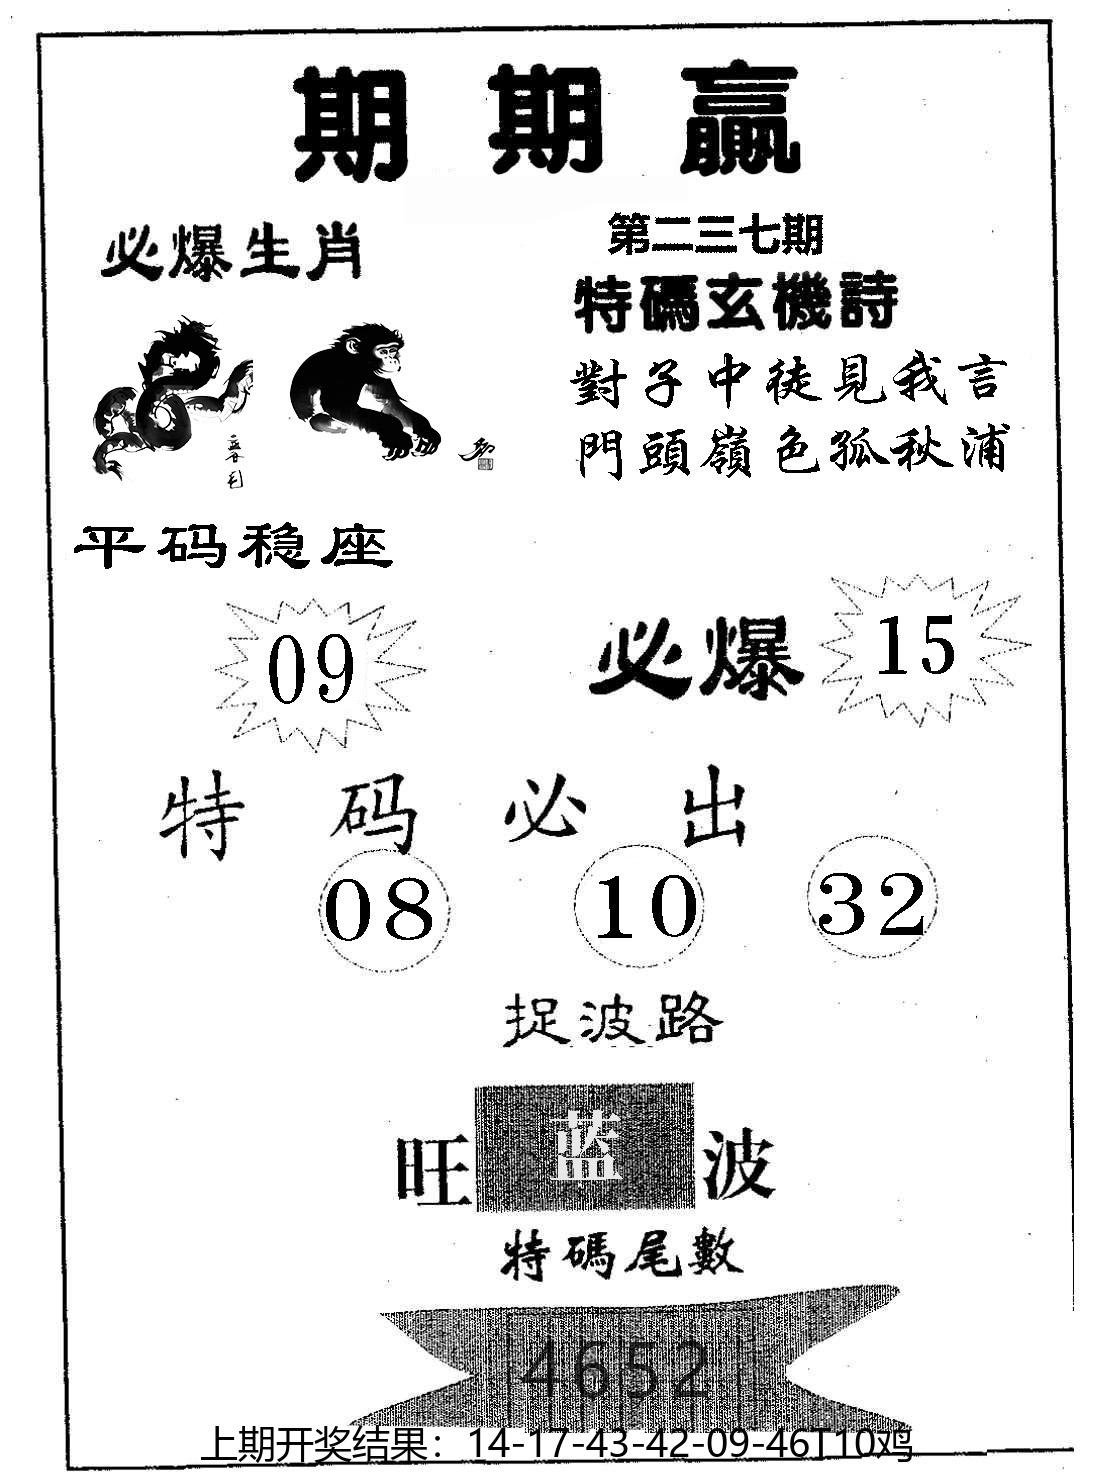 期期贏
第二三七期
必爆生肖
特碼玄機詩
對子中徒見我言
門頭嶺色孤秋浦
平码稳座
09
必爆 15
特码必出
08 10 32
捉波路
旺蓝波
特碼尾數
4652
上期开奖结果：14-17-43-42-09-46T10鸡